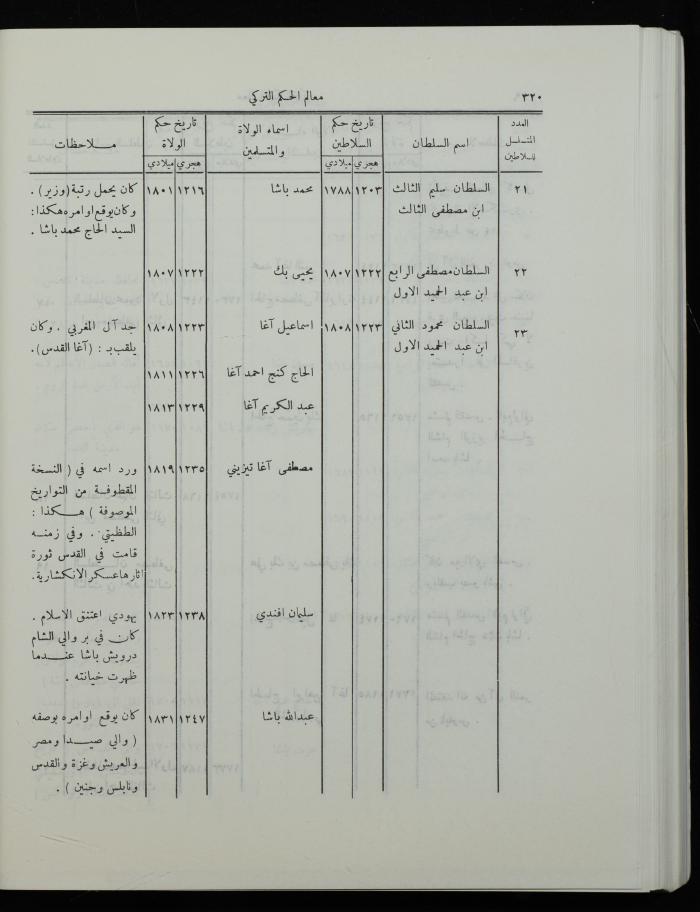 ٣٢٠ معالم الحكم التركي
العدد المتسلسل للسلاطين | اسم السلطان | تاريخ حكم السلاطين هجري ميلادي | اسماء الولاة والمتسلمين | تاريخ حكم الولاة هجري ميلادي | مـلاحظات
٢١ السلطان سليم الثالث ١٢٠٣ ١٧٨٨ محمد باشا ١٢١٦ ١٨٠١ كان يحمل رتبة (وزير) .
ابن مصطفى الثالث وكان يوقع اوامره هكذا :
السيد الحاج محمد باشا .
٢٢ السلطان مصطفى الرابع ١٢٢٢ ١٨٠٧ يحيى بك ١٢٢٢ ١٨٠٧
ابن عبد الحميد الاول
٢٣ السلطان محمود الثاني ١٢٢٣ ١٨٠٨ اسماعيل آغا ١٢٢٣ ١٨٠٨ جد آل المغربي . وكان
ابن عبد الحميد الاول يلقب بـ : (آغا القدس).
الحاج كنج احمد آغا ١٢٢٦ ١٨١١
عبد الكريم آغا ١٢٢٩ ١٨١٣
مصطفى آغا تيزيني ١٢٣٥ ١٨١٩ ورد اسمه في ( النسخة
المقطوفـة من التواريخ
الموصوفة ) هـكذا :
الظظيتي . وفي زمنـه
قامت في القدس ثورة
اثارها عسكر الانكشارية.
سليمان افندي ١٢٣٨ ١٨٢٣ يهودي اعتنق الاسلام .
كان في بر والي الشام
درويش باشا عنـدما
ظهرت خيانته .
عبدالله باشا ١٢٤٧ ١٨٣١ كان يوقع اوامره بوصفه
( والي صيـدا ومصر
والعريش وغزة والقدس
ونابلس وجنين ) .